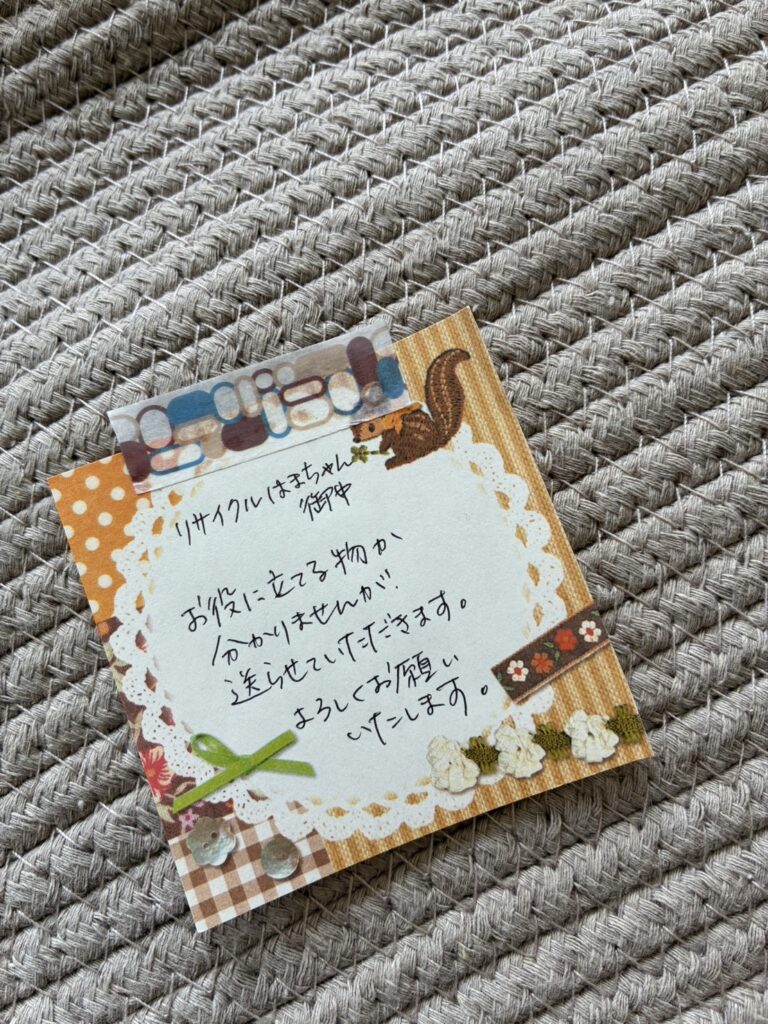 リサイクルはまちゃん
御中
お役に立てる物か
分かりませんが、
送らせていただきます。
よろしくお願い
いたします。